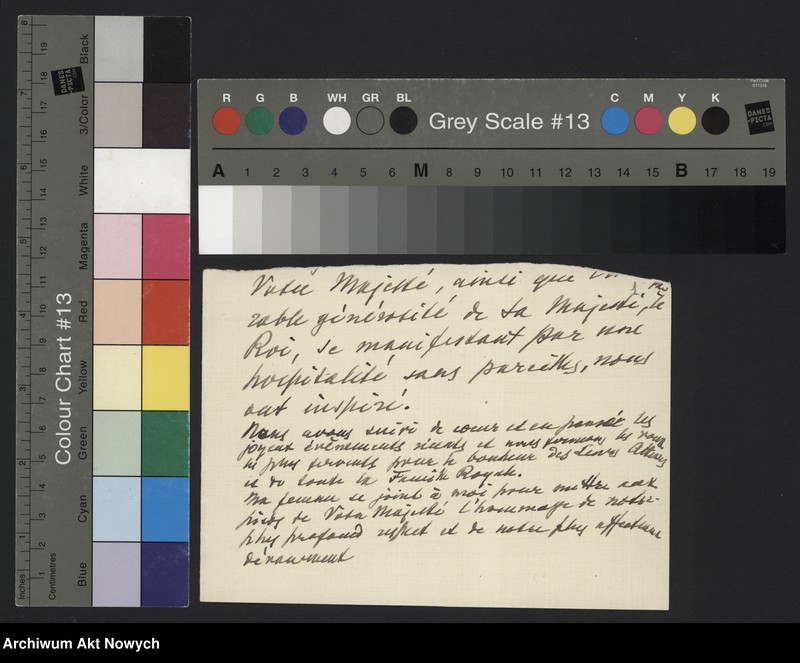 Inches
1 2 3 4 5 6 7 8
Centimetres
1 2 3 4 5 6 7 8 9 10 11 12 13 14 15 16 17 18 19
Colour Chart #13
Blue Cyan Green Yellow Red Magenta White 3/Color Black
DANES
-PICTA
.COM
R G B WH GR BL
Grey Scale #13
C M Y K
DANES
-PICTA
.COM
A 1 2 3 4 5 6 M 8 9 10 11 12 13 14 15 B 17 18 19
Votre Majesté, ainsi que
rable générosité de Sa Majesté, le
Roi, se manifestant par une
hospitalité sans pareilles, nous
ont inspiré.
Nous avons suivi de cœur et en pensée les
joyeux évènements récents et nous formons les vœux
les plus fervents pour le bonheur des Leurs Altesses
et de toute la Famille Royale.
Ma femme se joint à moi pour mettre aux
pieds de Votre Majesté l'hommage de notre
plus profond respect et de notre plus affectueux
dévouement
Archiwum Akt Nowych